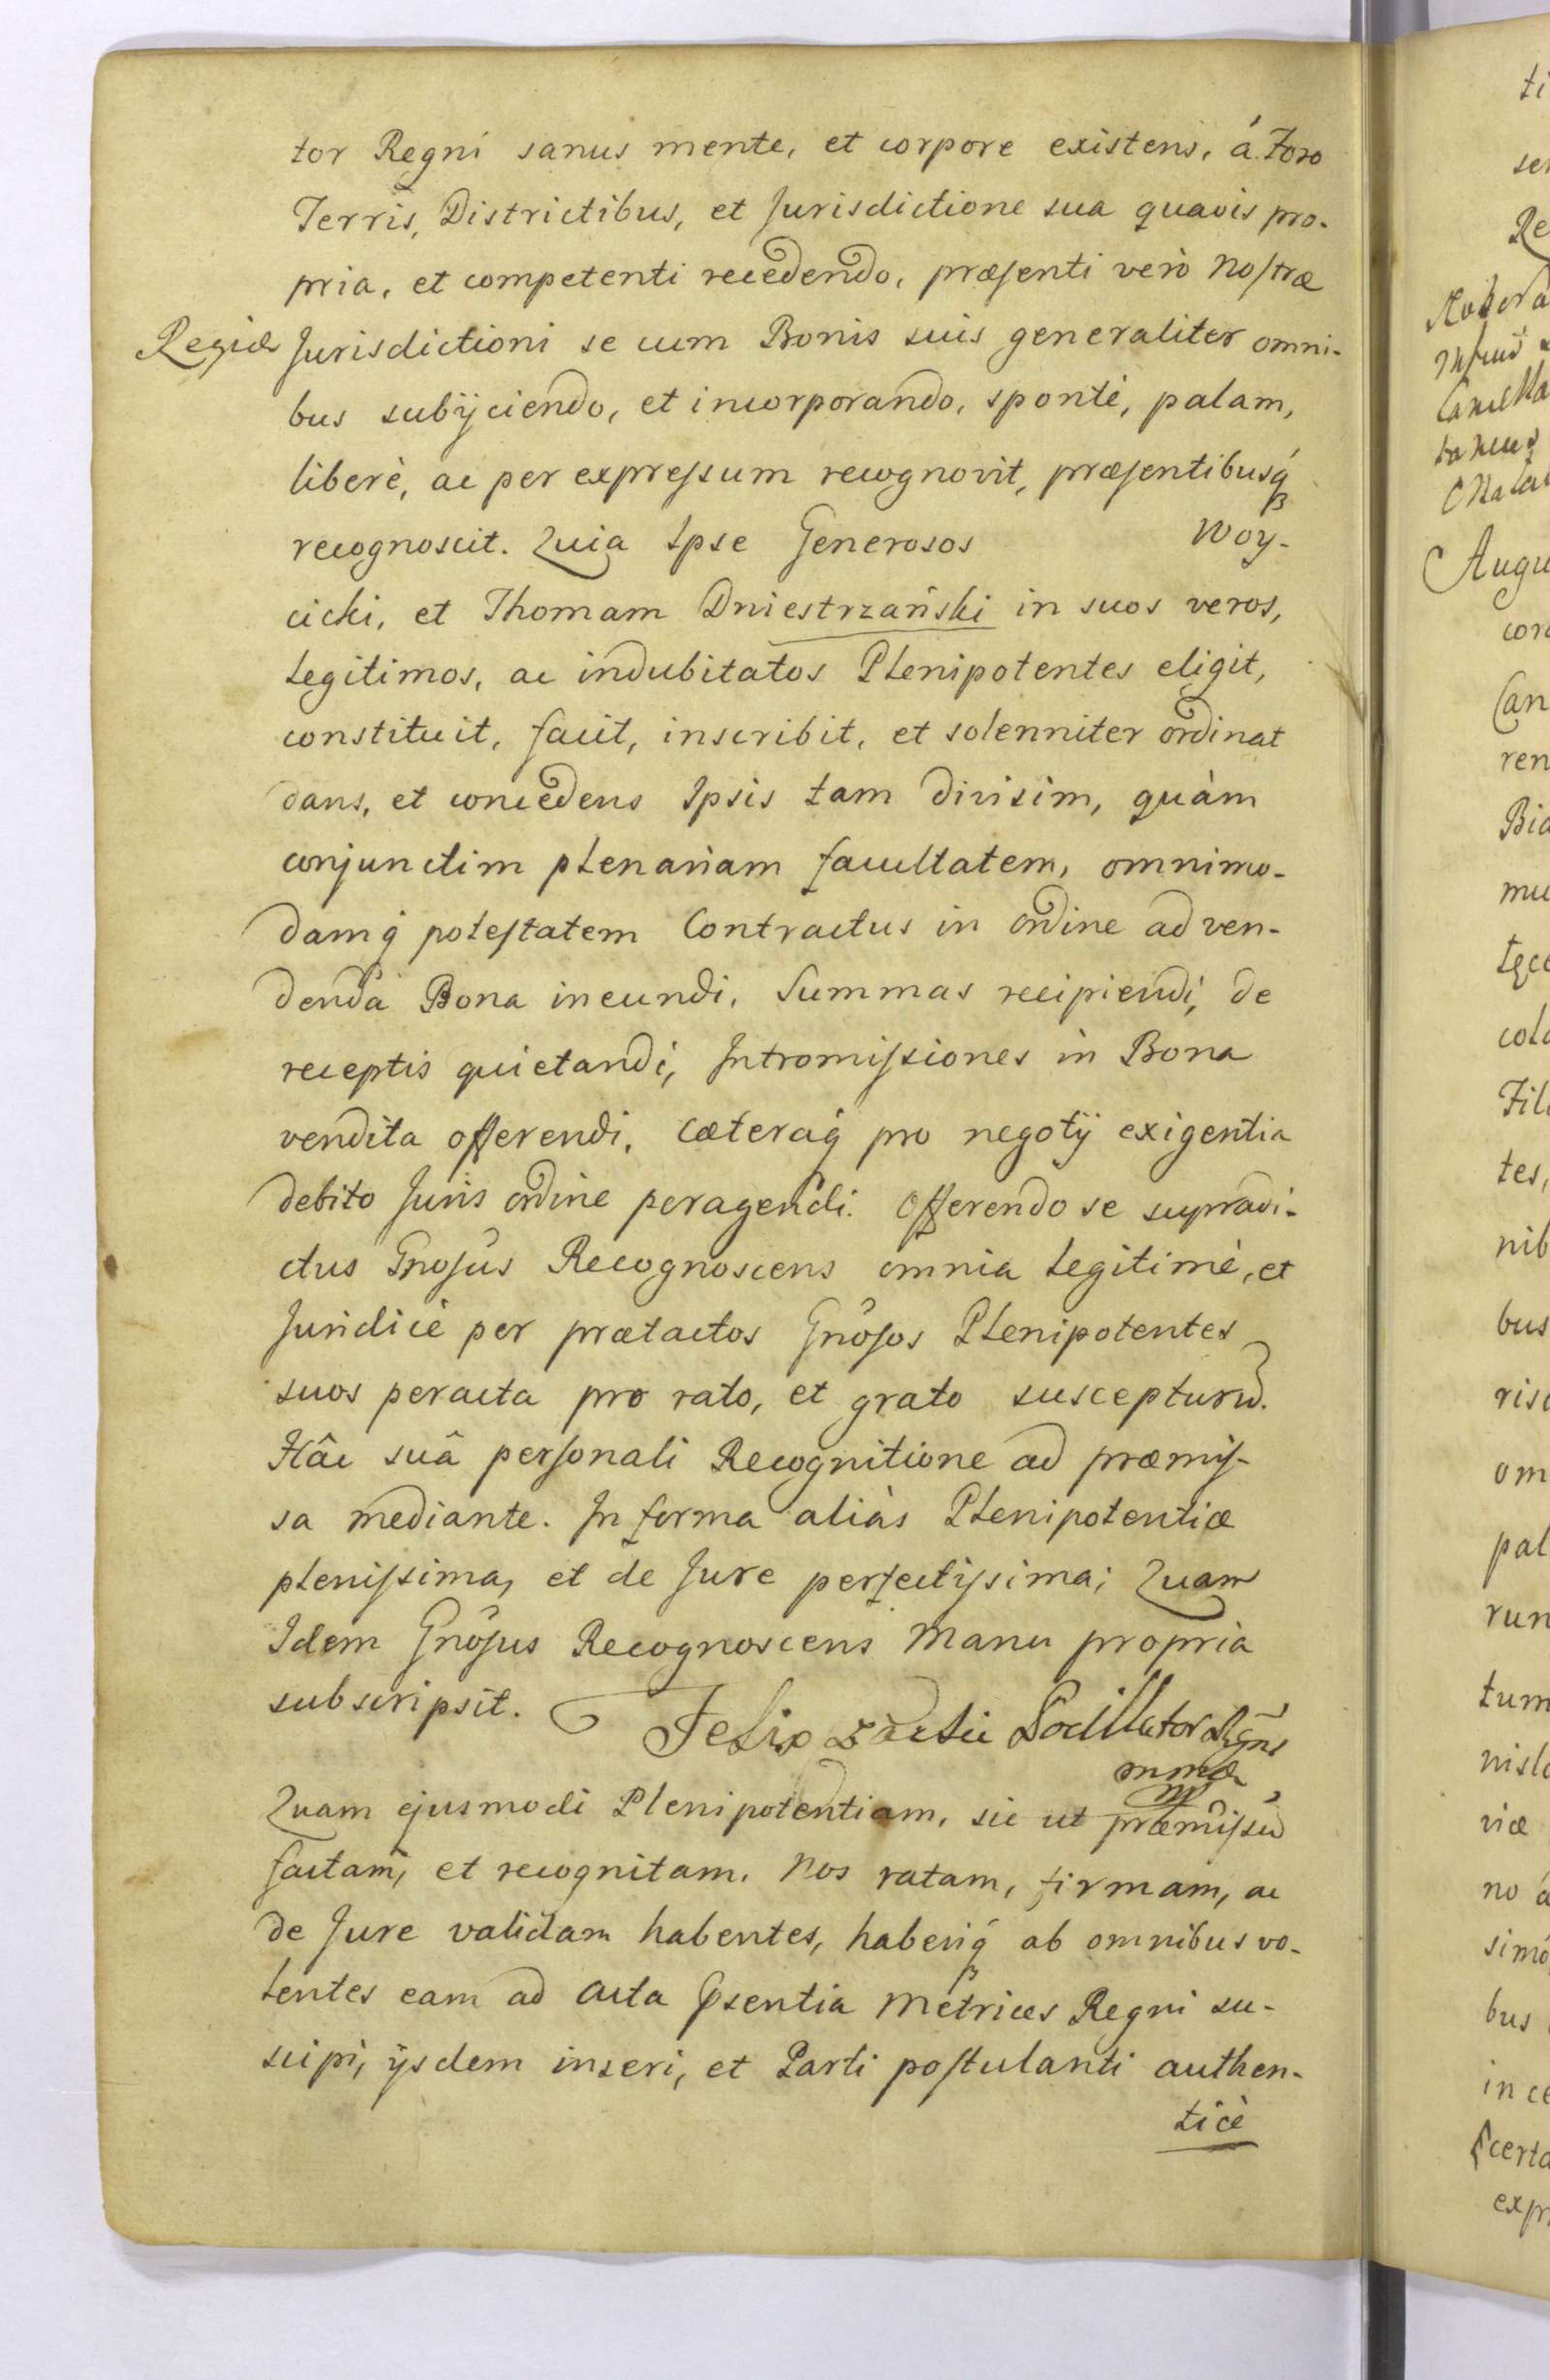 tor Regni sanus mente, et corpore existens, á Foro
Terris, Districtibus, et Jurisdictione sua quavis pro-
pria, et competenti recedendo, præsenti verò Nostræ
Regiæ Jurisdictioni se cum Bonis suis generaliter omni-
bus subijciendo, et incorporando, spontè, palam,
liberè, ac per expressum recognovit, præsentibusq́
recognoscit. Quia Ipse Generosos Woy-
cicki, et Thomam Dniestrzański in suos veros,
legitimos, ac indubitatos Plenipotentes eligit,
constituit, facit, inscribit, et solenniter ordinat
dans, et concedens Ipsis tam divisim, quàm
conjunctim plenariam facultatem, omnimo-
damq́ potestatem Contractus in ordine ad ven-
denda Bona ineundi, Summas recipiendi, de
receptis quietandi, Intromissiones in Bona
vendita offerendi, cæteraq́ pro negotij exigentia
debito Juris ordine peragendi. Offerendo se supradi-
ctus Gnosus Recognoscens omnia legitimè, et
Juridicè per prætactos Gnosos Plenipotentes
suos peracta pro rato, et grato suscepturū.
Hâc suâ personali Recognitione ad præmis-
sa mediante. In forma aliàs Plenipotentiæ
plenissima, et de Jure perfectissima; Quam
Idem Gnosus Recognoscens Manu propria
subscripsit. Felix Pocillator Rgni
mmp
Quam ejusmodi Plenipotentiam, sic ut præmissū
factam, et recognitam. Nos ratam, firmam, ac
de Jure validam habentes, haberiq́ ab omnibus vo-
lentes eam ad Acta p̃sentia Metrices Regni su-
scipi, ijsdem inseri, et Parti postulanti authen-
ticè
ti
Re
Augu
Can
ren
Bia
mu
Fil
tes,
nib
bus
ris
om
pal
run
tum
nisl
viæ
no a
simó
bus
in ce
certa
exp